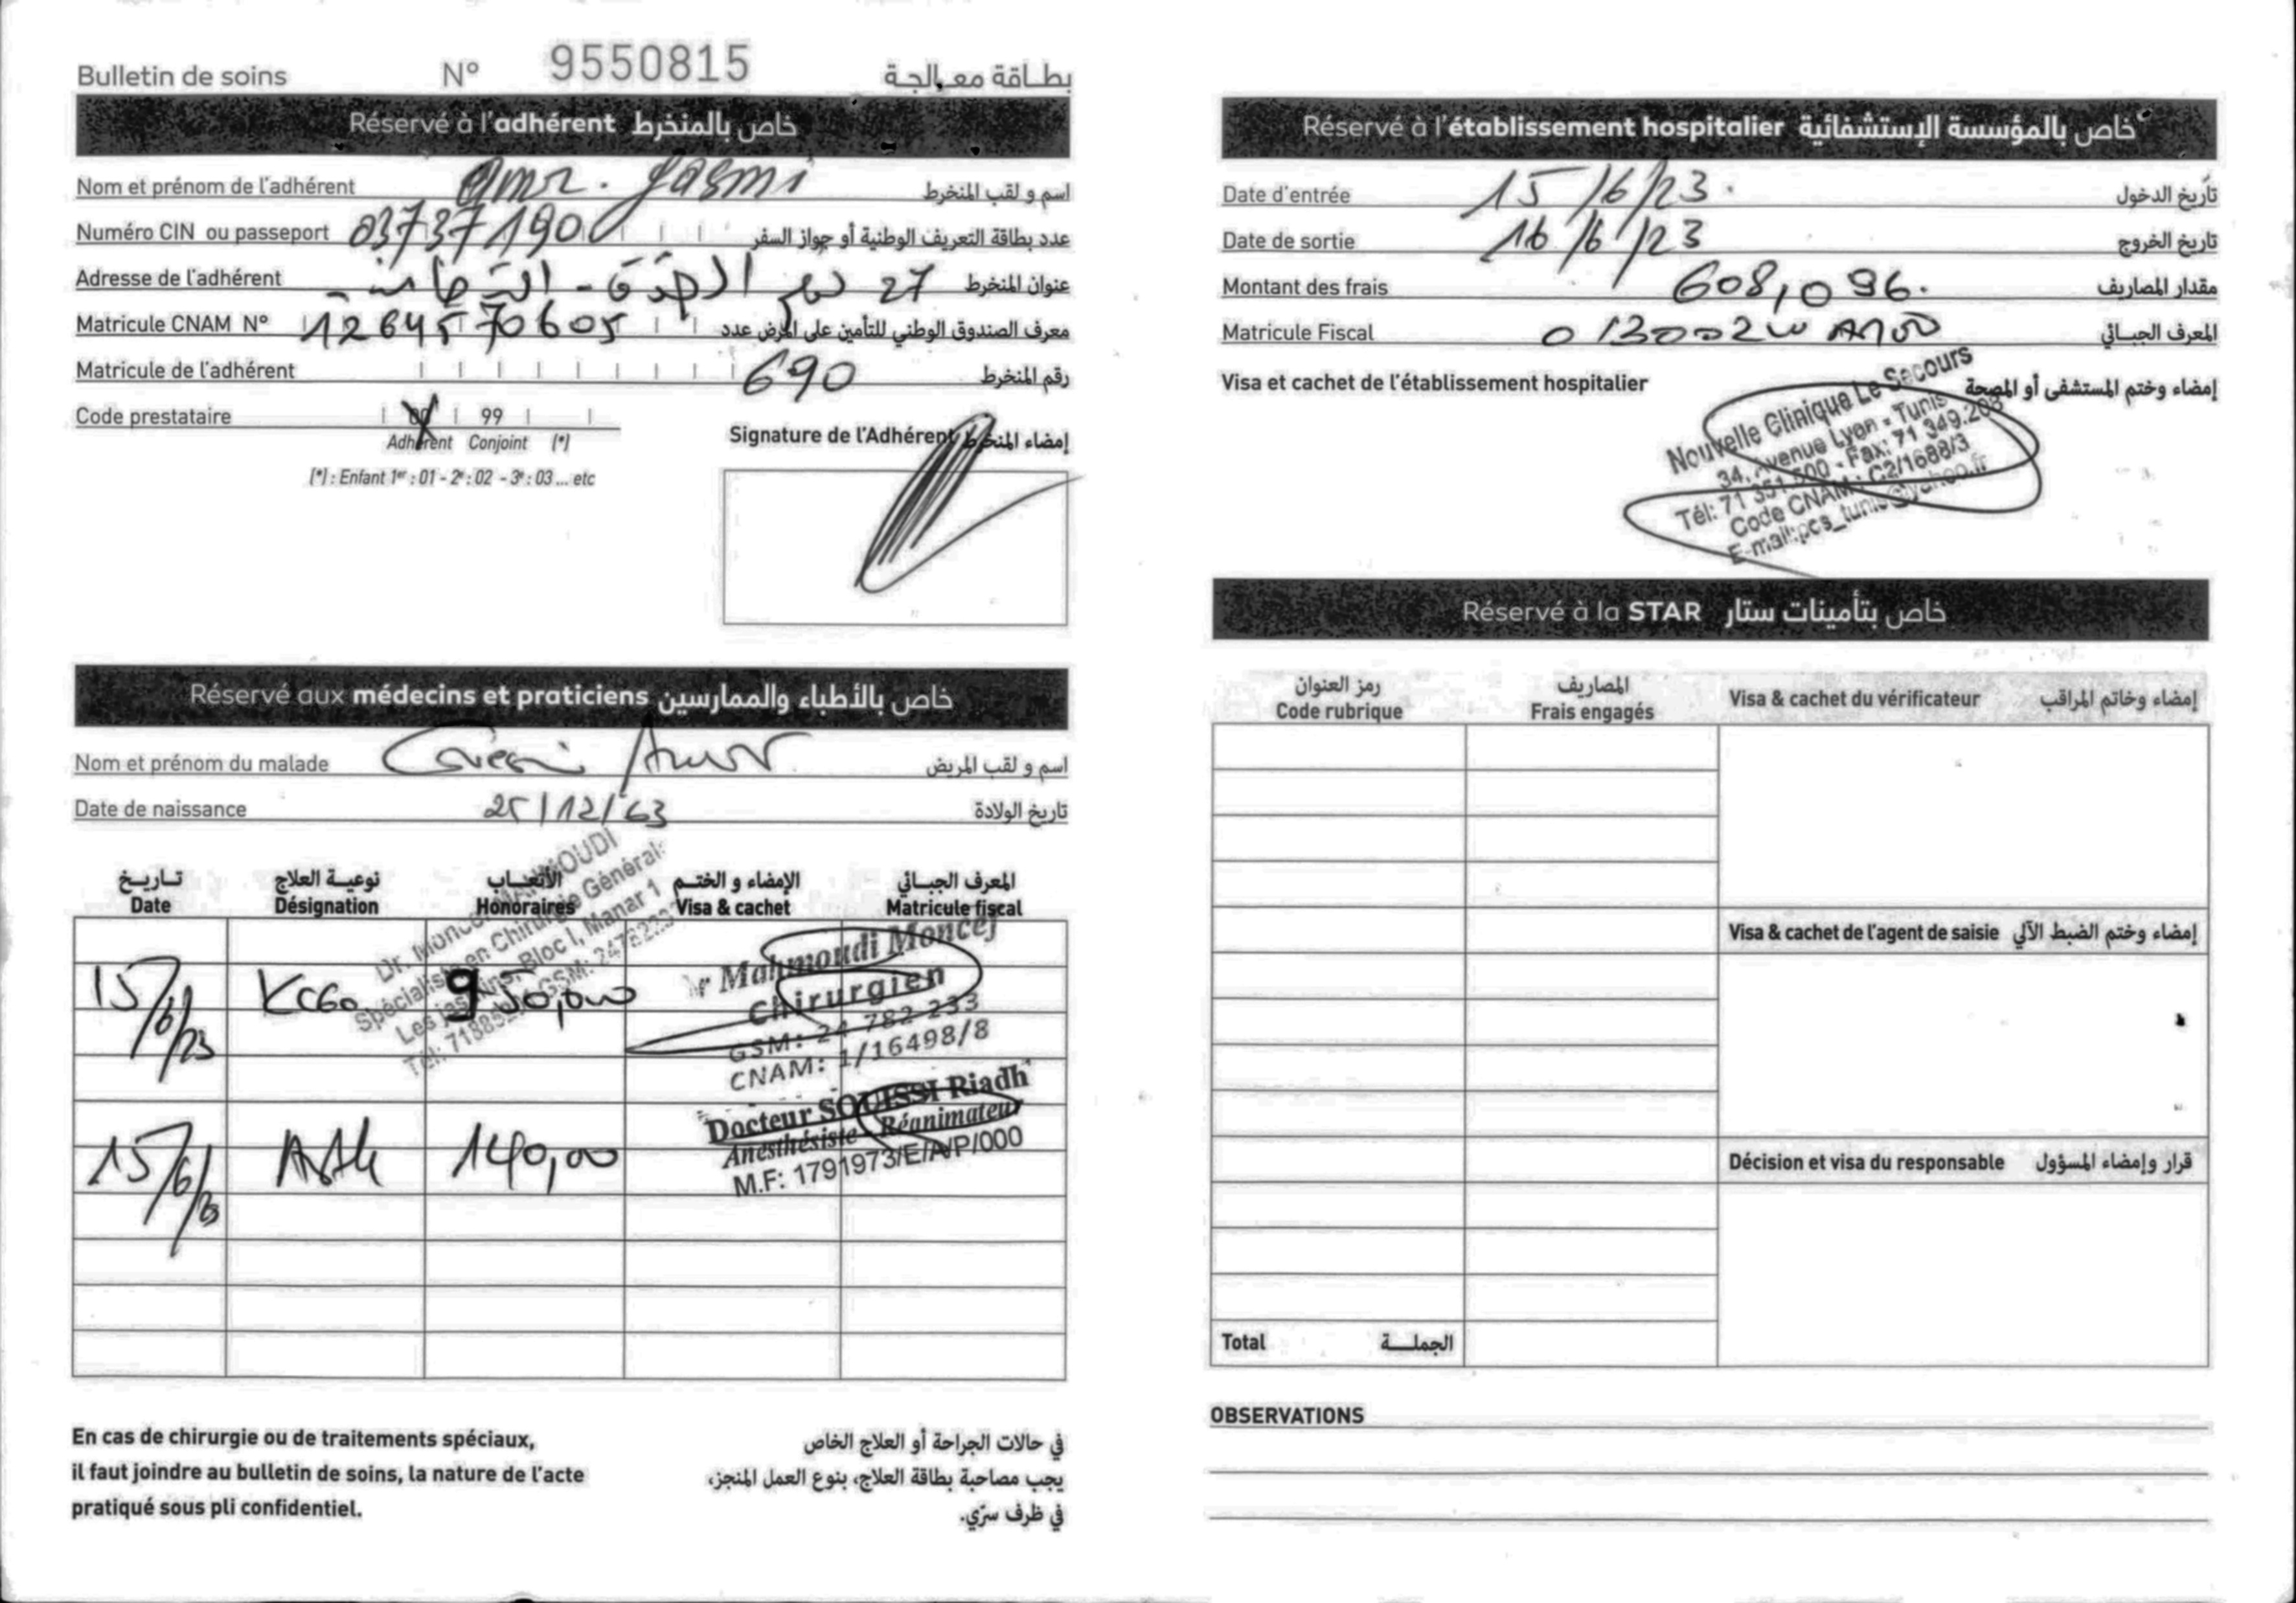 Bulletin de soins N° 9550815 بطاقة معالجة
Réservé à l'adhérent خاص بالمنخرط
Nom et prénom de l'adhérent amr. gasmi اسم و لقب المنخرط
Numéro CIN ou passeport 03737190 عدد بطاقة التعريف الوطنية أو جواز السفر
Adresse de l'adhérent 27 عنوان المنخرط
Matricule CNAM N° 1264570605 معرف الصندوق الوطني للتأمين على المرض عدد
Matricule de l'adhérent 690 رقم المنخرط
Code prestataire 00 99
Adhérent Conjoint (*)
(*) : Enfant 1er : 01 - 2e : 02 - 3e : 03 ... etc
Signature de l'Adhérent إمضاء المنخرط
Réservé aux médecins et praticiens خاص بالأطباء والممارسين
Nom et prénom du malade Amor اسم و لقب المريض
Date de naissance 25/12/63 تاريخ الولادة
تاريخ نوعية العلاج الأتعاب الإمضاء و الختم المعرف الجبائي
Date Désignation Honoraires Visa & cachet Matricule fiscal
Dr. Moncef MAHMOUDI
Spécialiste en Chirurgie Générale
Les jasmins, Bloc I, Manar 1
15/6/23 KC60 950,000
Dr Mahmoudi Moncef
Chirurgien
GSM: 24 782 233
CNAM: 1/16498/8
15/6/23 140,00
Docteur SOUISSI Riadh
Anesthésiste - Réanimateur
M.F: 1791973/E/A/P/000
En cas de chirurgie ou de traitements spéciaux,
il faut joindre au bulletin de soins, la nature de l'acte
pratiqué sous pli confidentiel.
في حالات الجراحة أو العلاج الخاص
يجب مصاحبة بطاقة العلاج، بنوع العمل المنجز،
في ظرف سرّي.
Réservé à l'établissement hospitalier خاص بالمؤسسة الإستشفائية
Date d'entrée 15/6/23. تاريخ الدخول
Date de sortie 16/6/23 تاريخ الخروج
Montant des frais 608,096. مقدار المصاريف
Matricule Fiscal المعرف الجبائي
Visa et cachet de l'établissement hospitalier إمضاء وختم المستشفى أو المصحة
Nouvelle Clinique Le Secours
34, Avenue Lyon - Tunis
Tél: 71 351 500 - Fax: 71 349.208
Code CNAM : C2/1688/3
E-mail:pcs_tunis@yahoo.fr
Réservé à la STAR خاص بتأمينات ستار
رمز العنوان المصاريف
Code rubrique Frais engagés Visa & cachet du vérificateur إمضاء وخاتم المراقب
Visa & cachet de l'agent de saisie إمضاء وختم الضبط الآلي
Décision et visa du responsable قرار وإمضاء المسؤول
Total الجملة
OBSERVATIONS